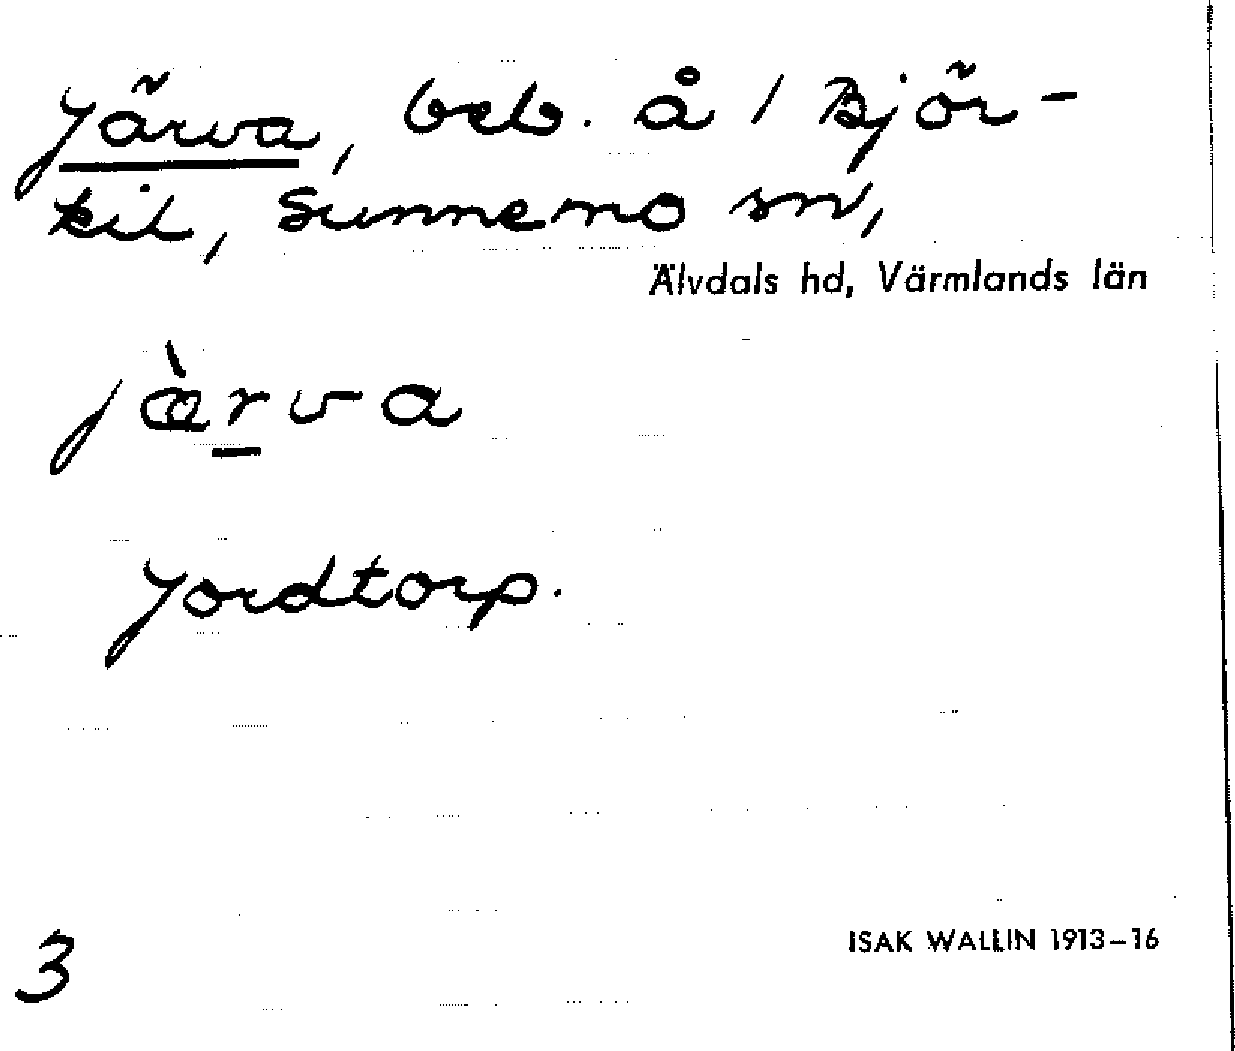 Järva, beb. å 1 Björ-
kil, Sunnemo sn,
Älvdals hd, Värmlands län
jæ̀r̲va
Jordtorp.
3
ISAK WALLIN 1913-16